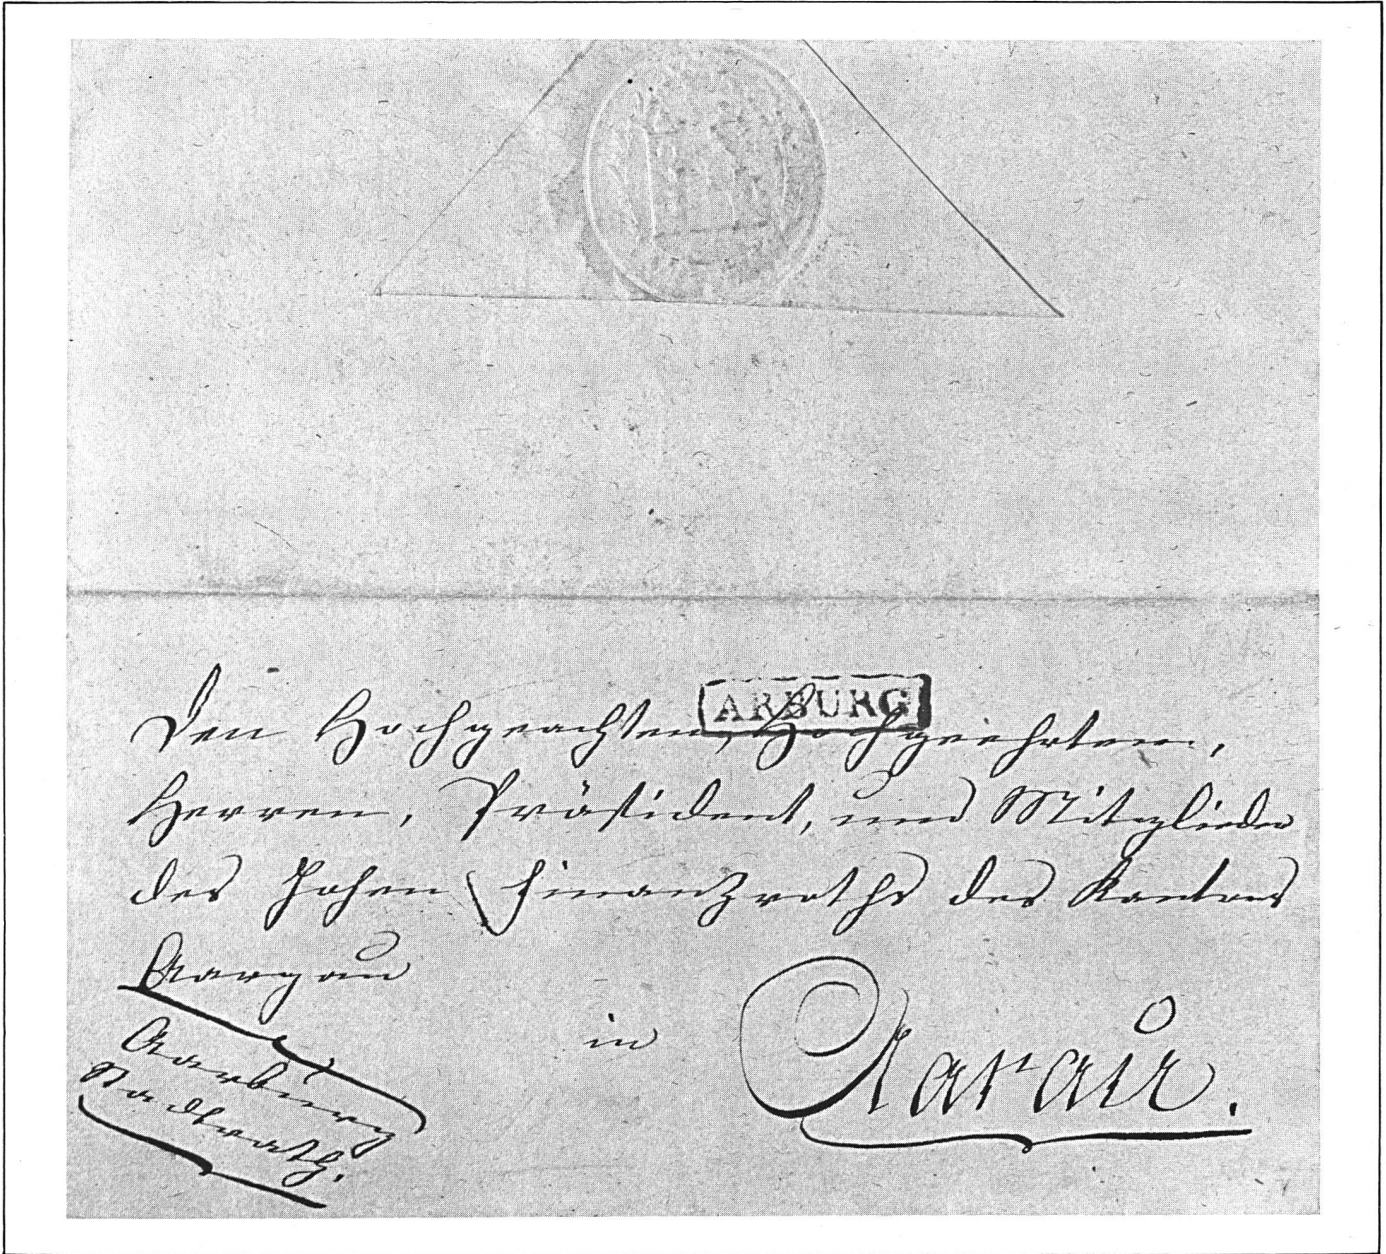 ARBURG
Den Hochgeachten, Hochgeehrten,
Herren, Präsident, und Mitglieder
des hohen Finanzraths des Kantons
Aargau
in Aarau.
Aarburg
Stadtrath.